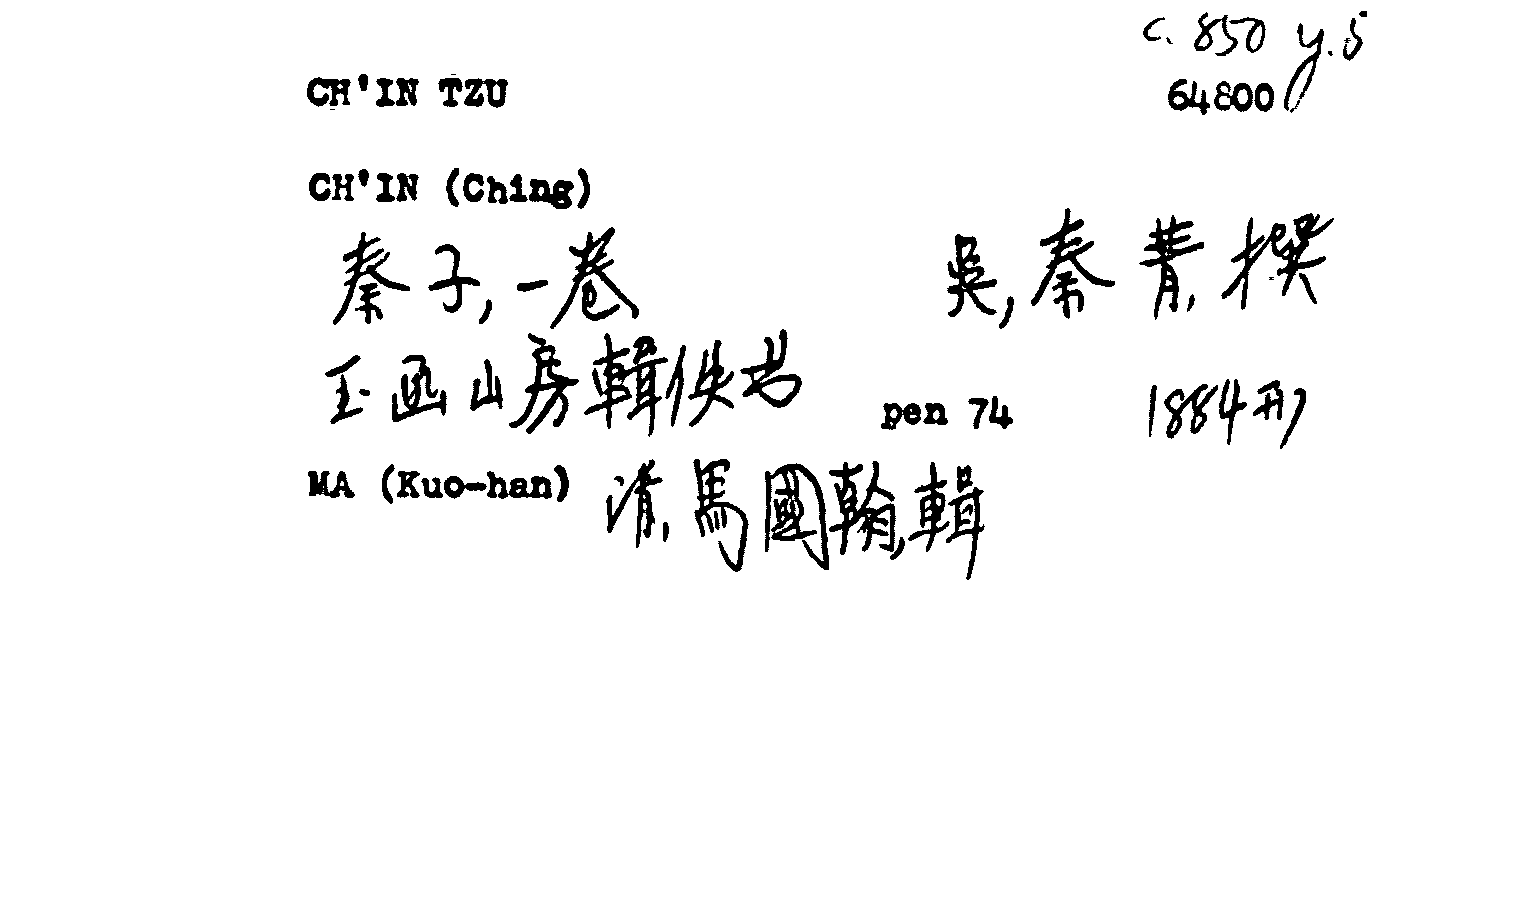 c. 850 y.5
CH'IN TZU 64800
CH'IN (Ching)
秦子,一卷 吳,秦菁,撰
玉函山房輯佚书 pen 74 1884刊
MA (Kuo-han) 清,馬國翰,輯